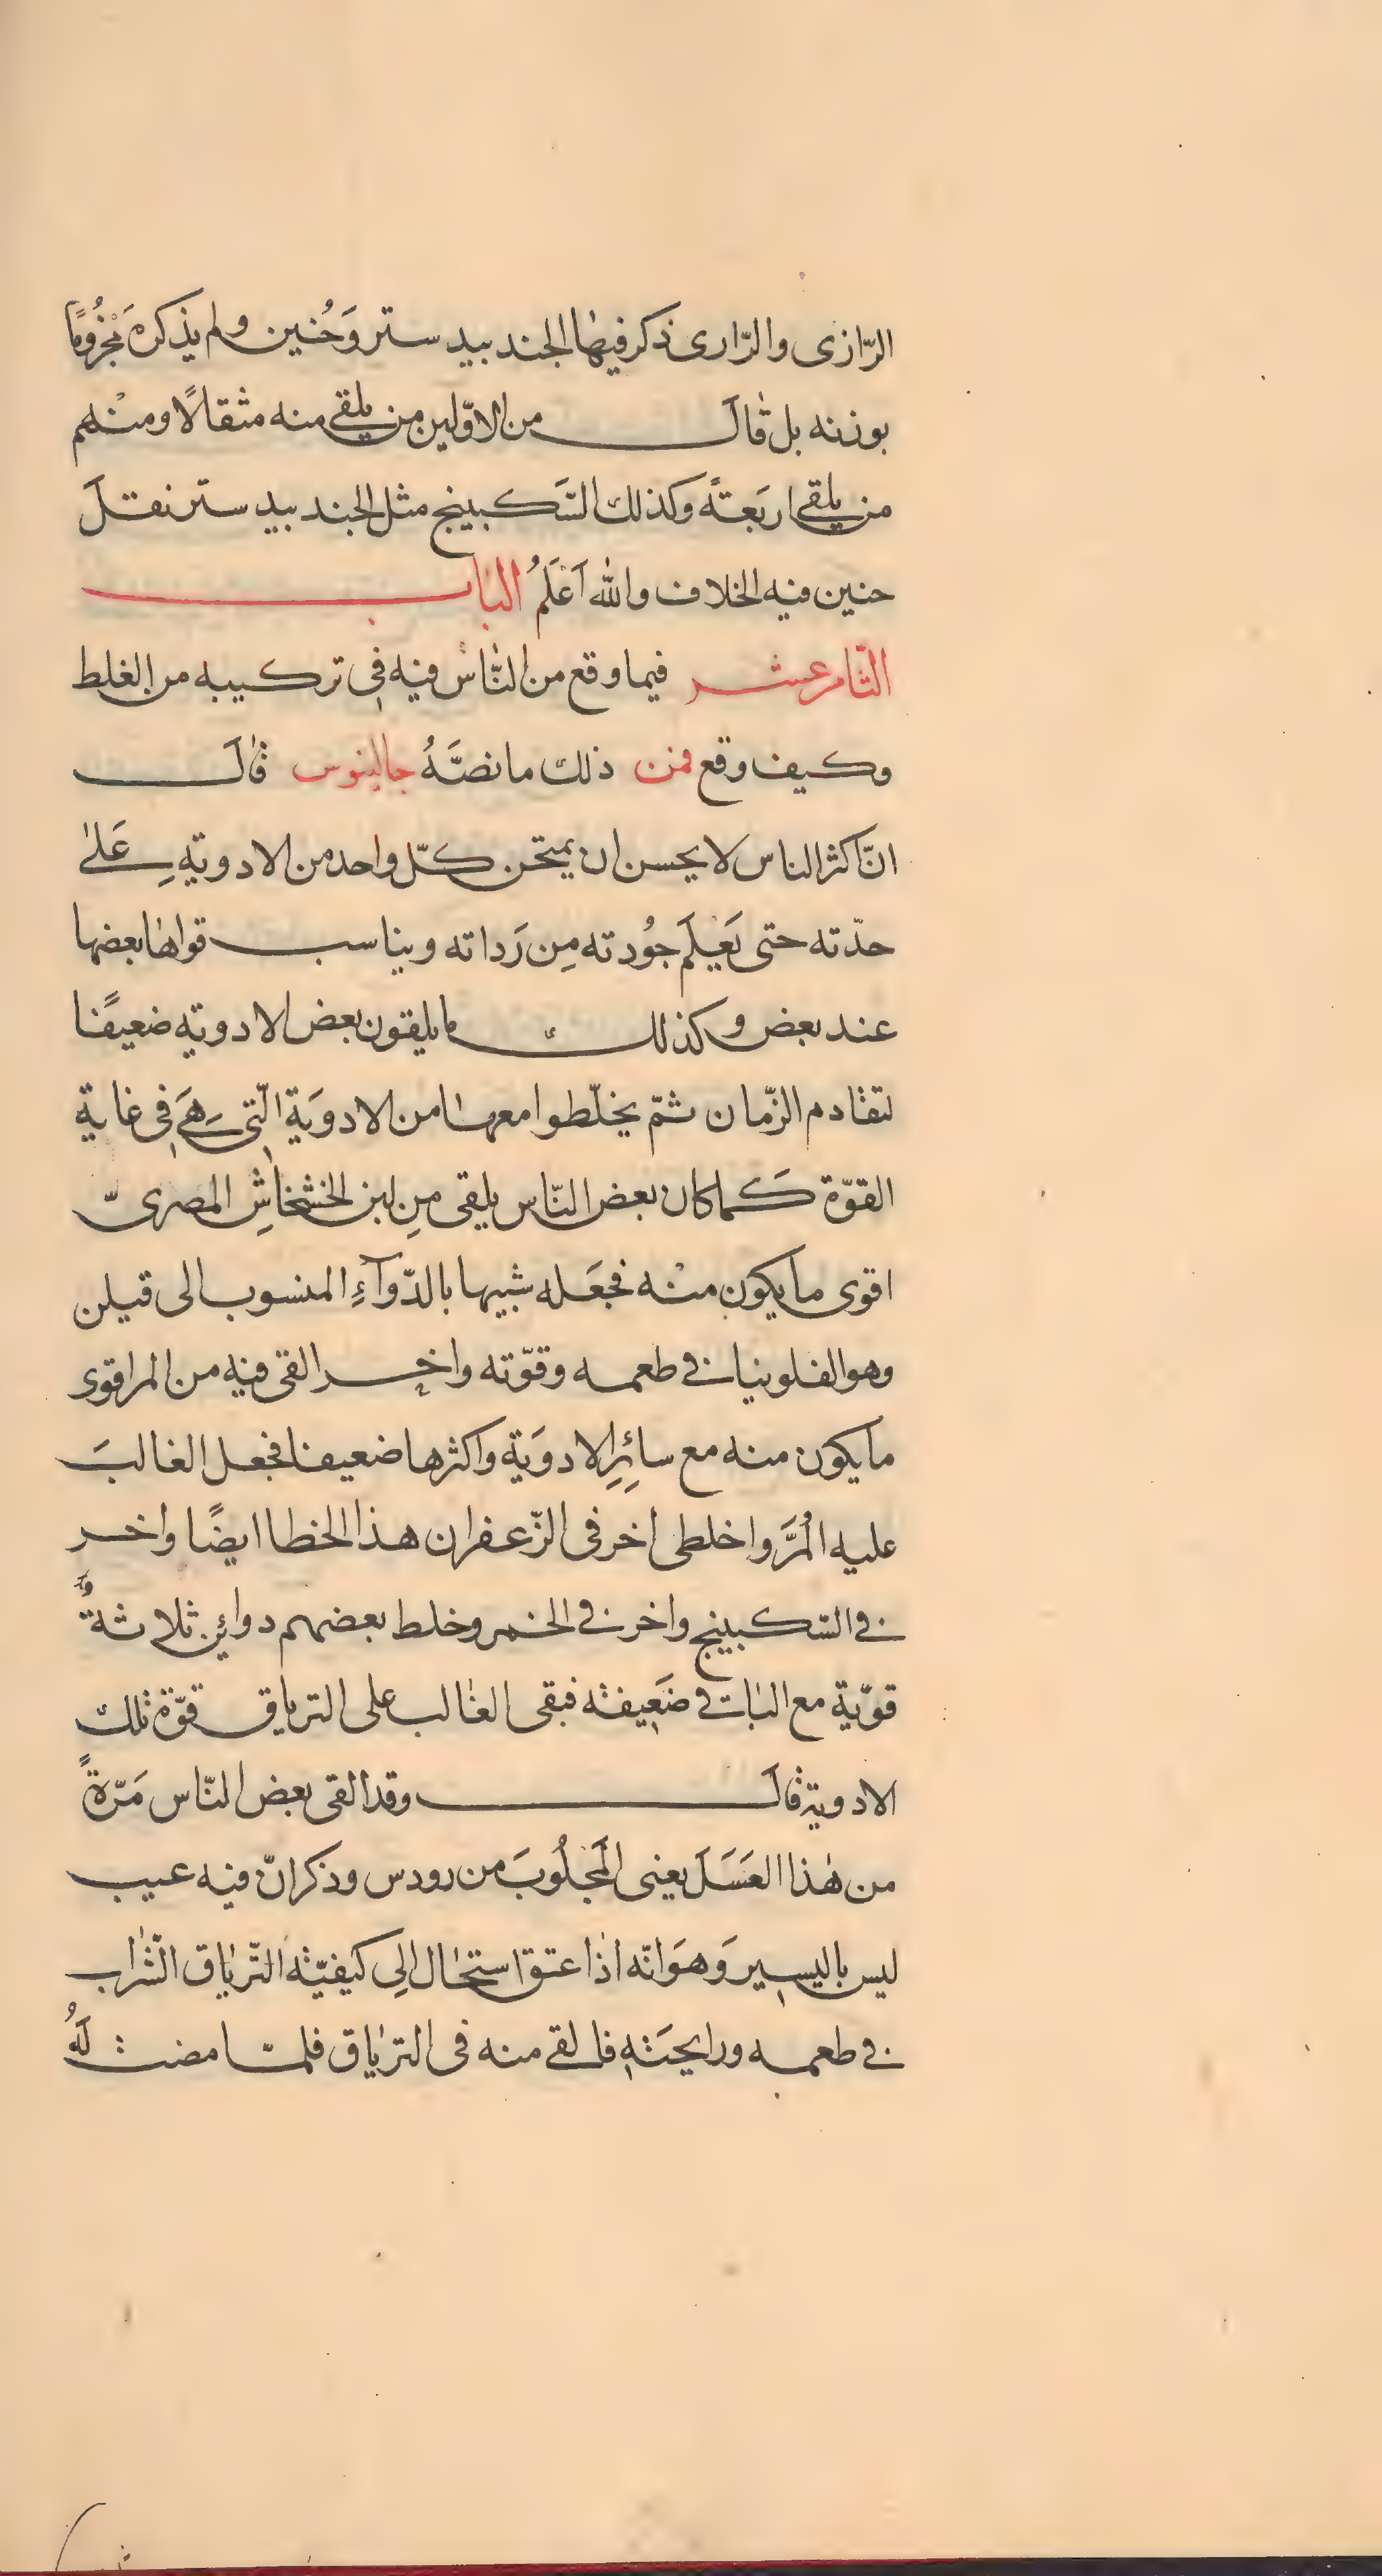 الرّازى والرّارى ذكر فيها الجند بيد ستر وَحُنين ولم يذكره مَجْزُومًا
بوزنه بل قالَ من الاوّلين من يلقى منه مثقالًا ومنهم
من يلقى اربَعتةً وكذلك السَّكبينج مثل الجند بيد ستر نقلَ
حنين فيه الخلاف والله اَعْلَمُ الباب
الثّامن عشر فيما وقع من النّاس فيه فى تركيبه من الغلط
وكيف وقع فمن ذلك ما نصَّهُ جالينوس قالَ
انّ اكثر الناس لا يحسن ان يمتحن كلّ واحد من الادويتهِ عَلىٰ
حدّته حتى يَعْلَم جوُدته مِن رَداته ويناسب قواها بعضها
عند بعض وكذلك ما يلقون بعض الادويته ضعيفًا
لتقادم الزّمان ثمّ يخلّطوا معها من الادوَية الّتى هىَ فى غاية
القوّة كَما كان بعض النّاس يلقى مِن لبن الخشخاشِ المصرىّ
اقوى ما يكون منْه فجَعَله شبيها بالدّوآءِ المنسوب الى قيلن
وهو الفلونيا فى طعمه وقوّته واخر القى فيه من المر اقوى
ما يكون منه مع سائرِ الادوَية واكثرها ضعيفا فجعل الغالبَ
عليه المُرَّ واخلطى اخر فى الزّعفران هذا الخطا ايضًا واخر
فى السّكبينج واخر فى الخمر وخلط بعضهم دوائين ثلاثةٌ
قوّية مع الباقى ضَعِيفته فبقى الغالب على الترياق قوّة تلك
الادوية قالَ وقد القى بعض النّاس مَرّةً
من هٰذا العَسَلَ يعنى المَجْلُوبَ من رودس وذكر انّ فيه عيب
ليس باليسِير وَهوَ انّه اذا عتق استحال الِى كيفيّته التّرياق الشّراب
فى طعمه ورايحَتهِ فالقى منه فى الترياق فلمّا مضت لَهُ